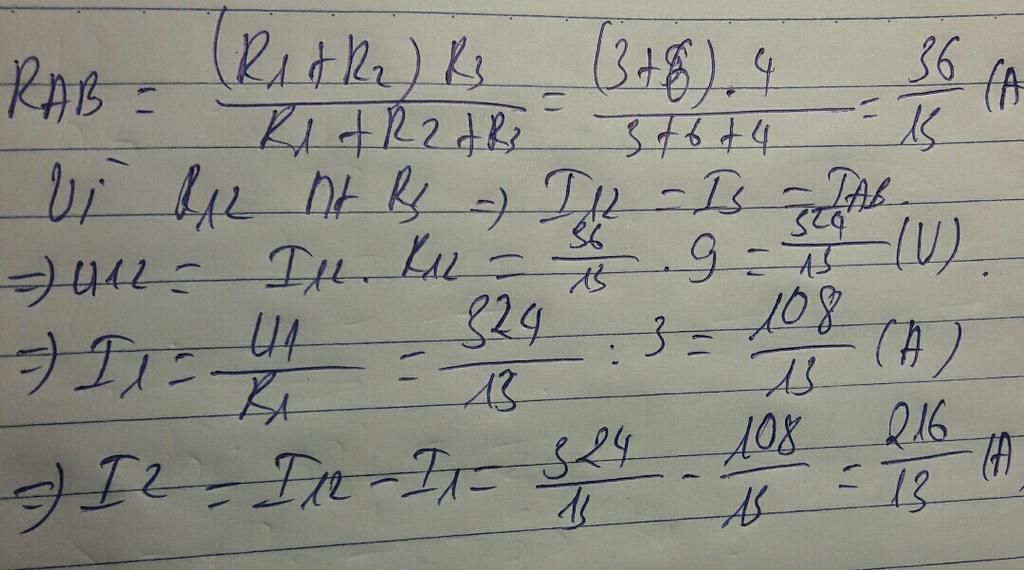 RAB = (R1+R2) R3 / R1+R2+R3 = (3+6).4 / 3+6+4 = 36/13 (A
Vì R12 nt R3 => I12 = I3 = IAB.
=> U12 = I12. R12 = 36/13 . 9 = 324/13 (V).
=> I1 = U1/R1 = 324/13 : 3 = 108/13 (A)
=> I2 = I12 - I1 = 324/13 - 108/13 = 216/13 (A)